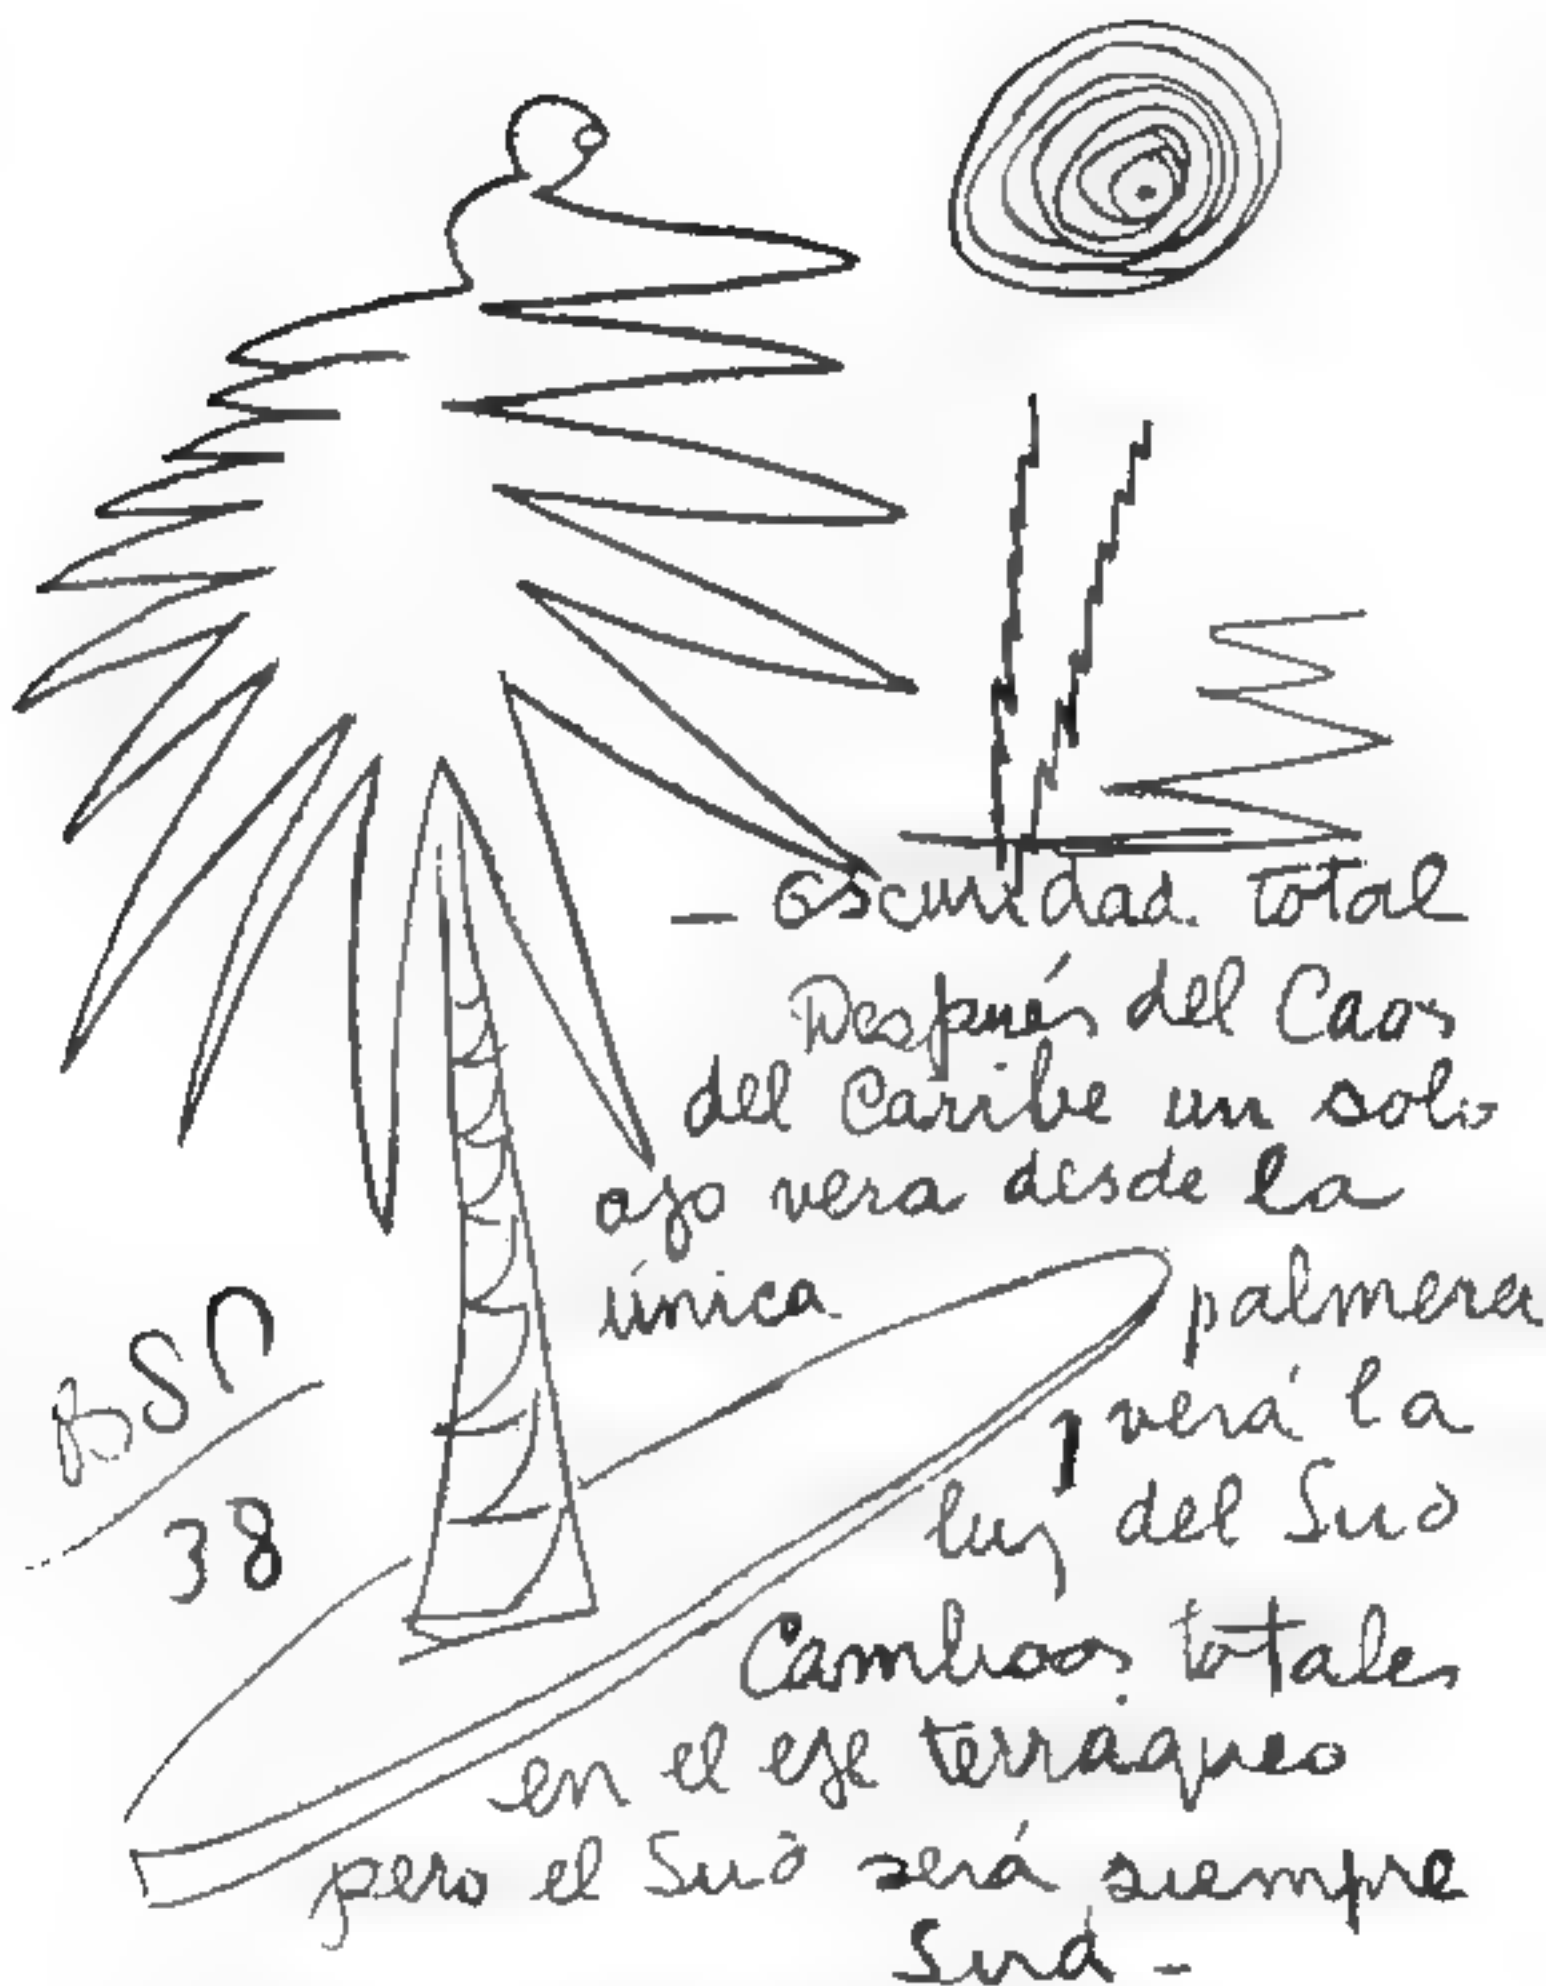 - Oscuridad total
Después del Caos
del Caribe un solo
ojo vera desde la
única palmera
, verá la
luz del Sud
Cambios totales
en el eje terráqueo
pero el Sud será siempre
Sud -
BSP
38